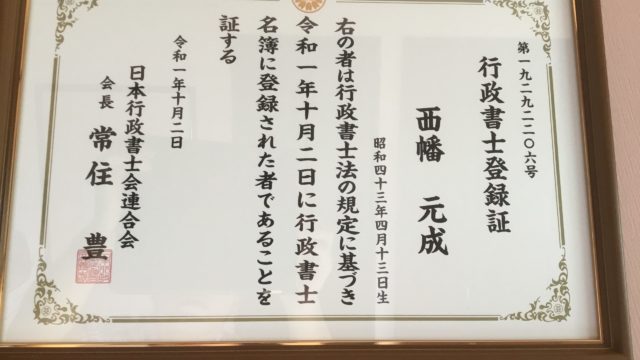 第一九二九二二〇六号
行政書士登録証
西幡 元成
昭和四十三年四月十三日生
右の者は行政書士法の規定に基づき
令和一年十月二日に行政書士
名簿に登録された者であることを
証する
令和一年十月二日
日本行政書士会連合会
会長 常住 豊